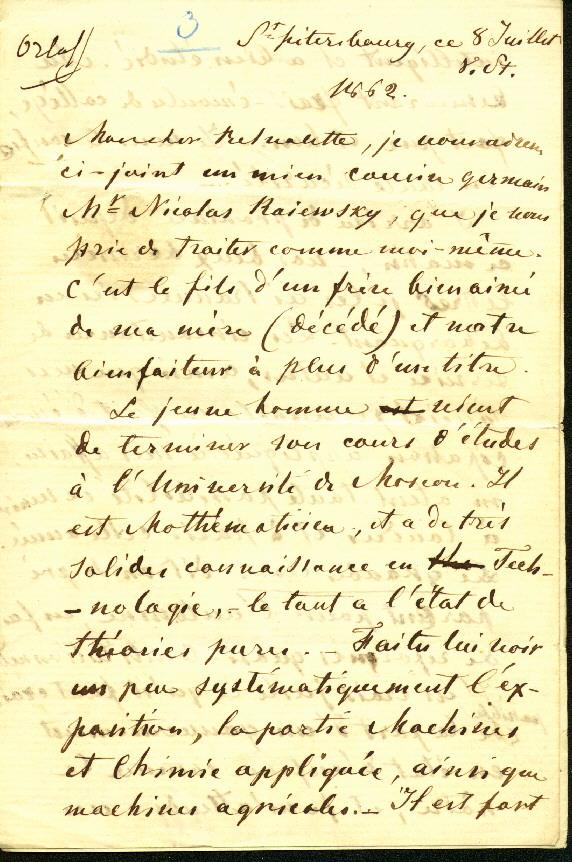 Orloff
3
St. pétersbourg, ce 8 Juillet
v. St.
1862.
Mon cher, je vous adresse
ci-joint un mien cousin germain
Mr Nicolas Raiewsky, que je vous
prie de traiter comme moi-même.
C'est le fils d'un frère bienaimé
de ma mère (décédé) et notre
bienfaiteur à plus d'un titre.
Le jeune homme est vient
de terminer son cours d'études
à l'Université de Moscou. Il
est Mathématicien, et a de très
solides connaissance en the Tech-
-nologie, - le tout a l'état de
théories pures. - Faites lui voir
un peu systématiquement l'éx-
position, la partie Machines
et Chimie appliquée, ainsi que
machines agricoles. - Il est fort